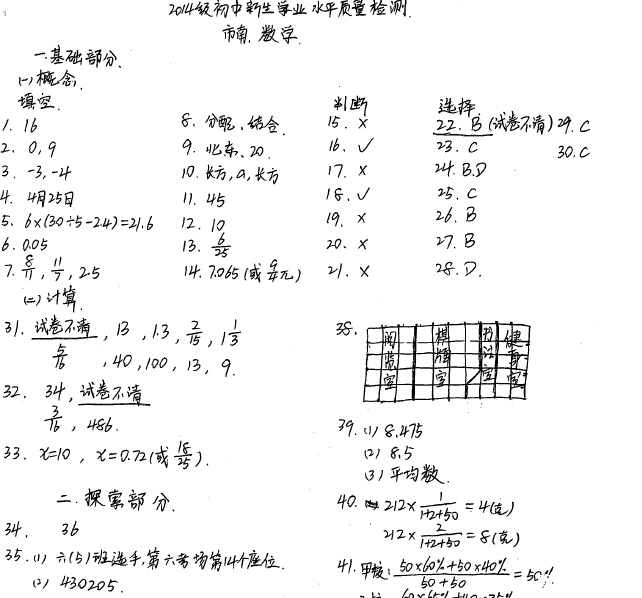 2014级初中新生学业水平质量检测.
市南.数学.
一.基础部分.
(一)概念.
填空.
1. 16
2. 0,9
3. -3,-4
4. 4月25日
5. 6×(30÷5-2.4)=21.6
6. 0.05
7. 8/11, 11/7, 25
8. 分配、结合.
9. 北东、20.
10. 长方,a,长方
11. 45
12. 10
13. 6/25
14. 7.065(或9/4π)
判断
15. ×
16. ✓
17. ×
18. ✓
19. ×
20. ×
21. ×
选择
22. B (试卷不清)
23. C
24. B.D
25. C
26. B
27. B
28. D.
29. C
30. C
(二)计算.
31. 试卷不清, 13, 1.3, 2/15, 1 1/3
5/16, 40, 100, 13, 9.
32. 34, 试卷不清
3/16, 486.
33. x=10, x=0.72(或18/25).
二.探索部分.
34. 36
35. (1) 六(5)班选手,第六考场第14个座位.
(2) 430205.
38.
阅览室
棋牌室
书法室
健身室
39. (1) 8.475
(2) 8.5
(3) 平均数.
40. 212×1/(1+2+50)=4(克)
212×2/(1+2+50)=8(克)
41. 甲校: (50×60%+50×40%)/(50+50)=50%